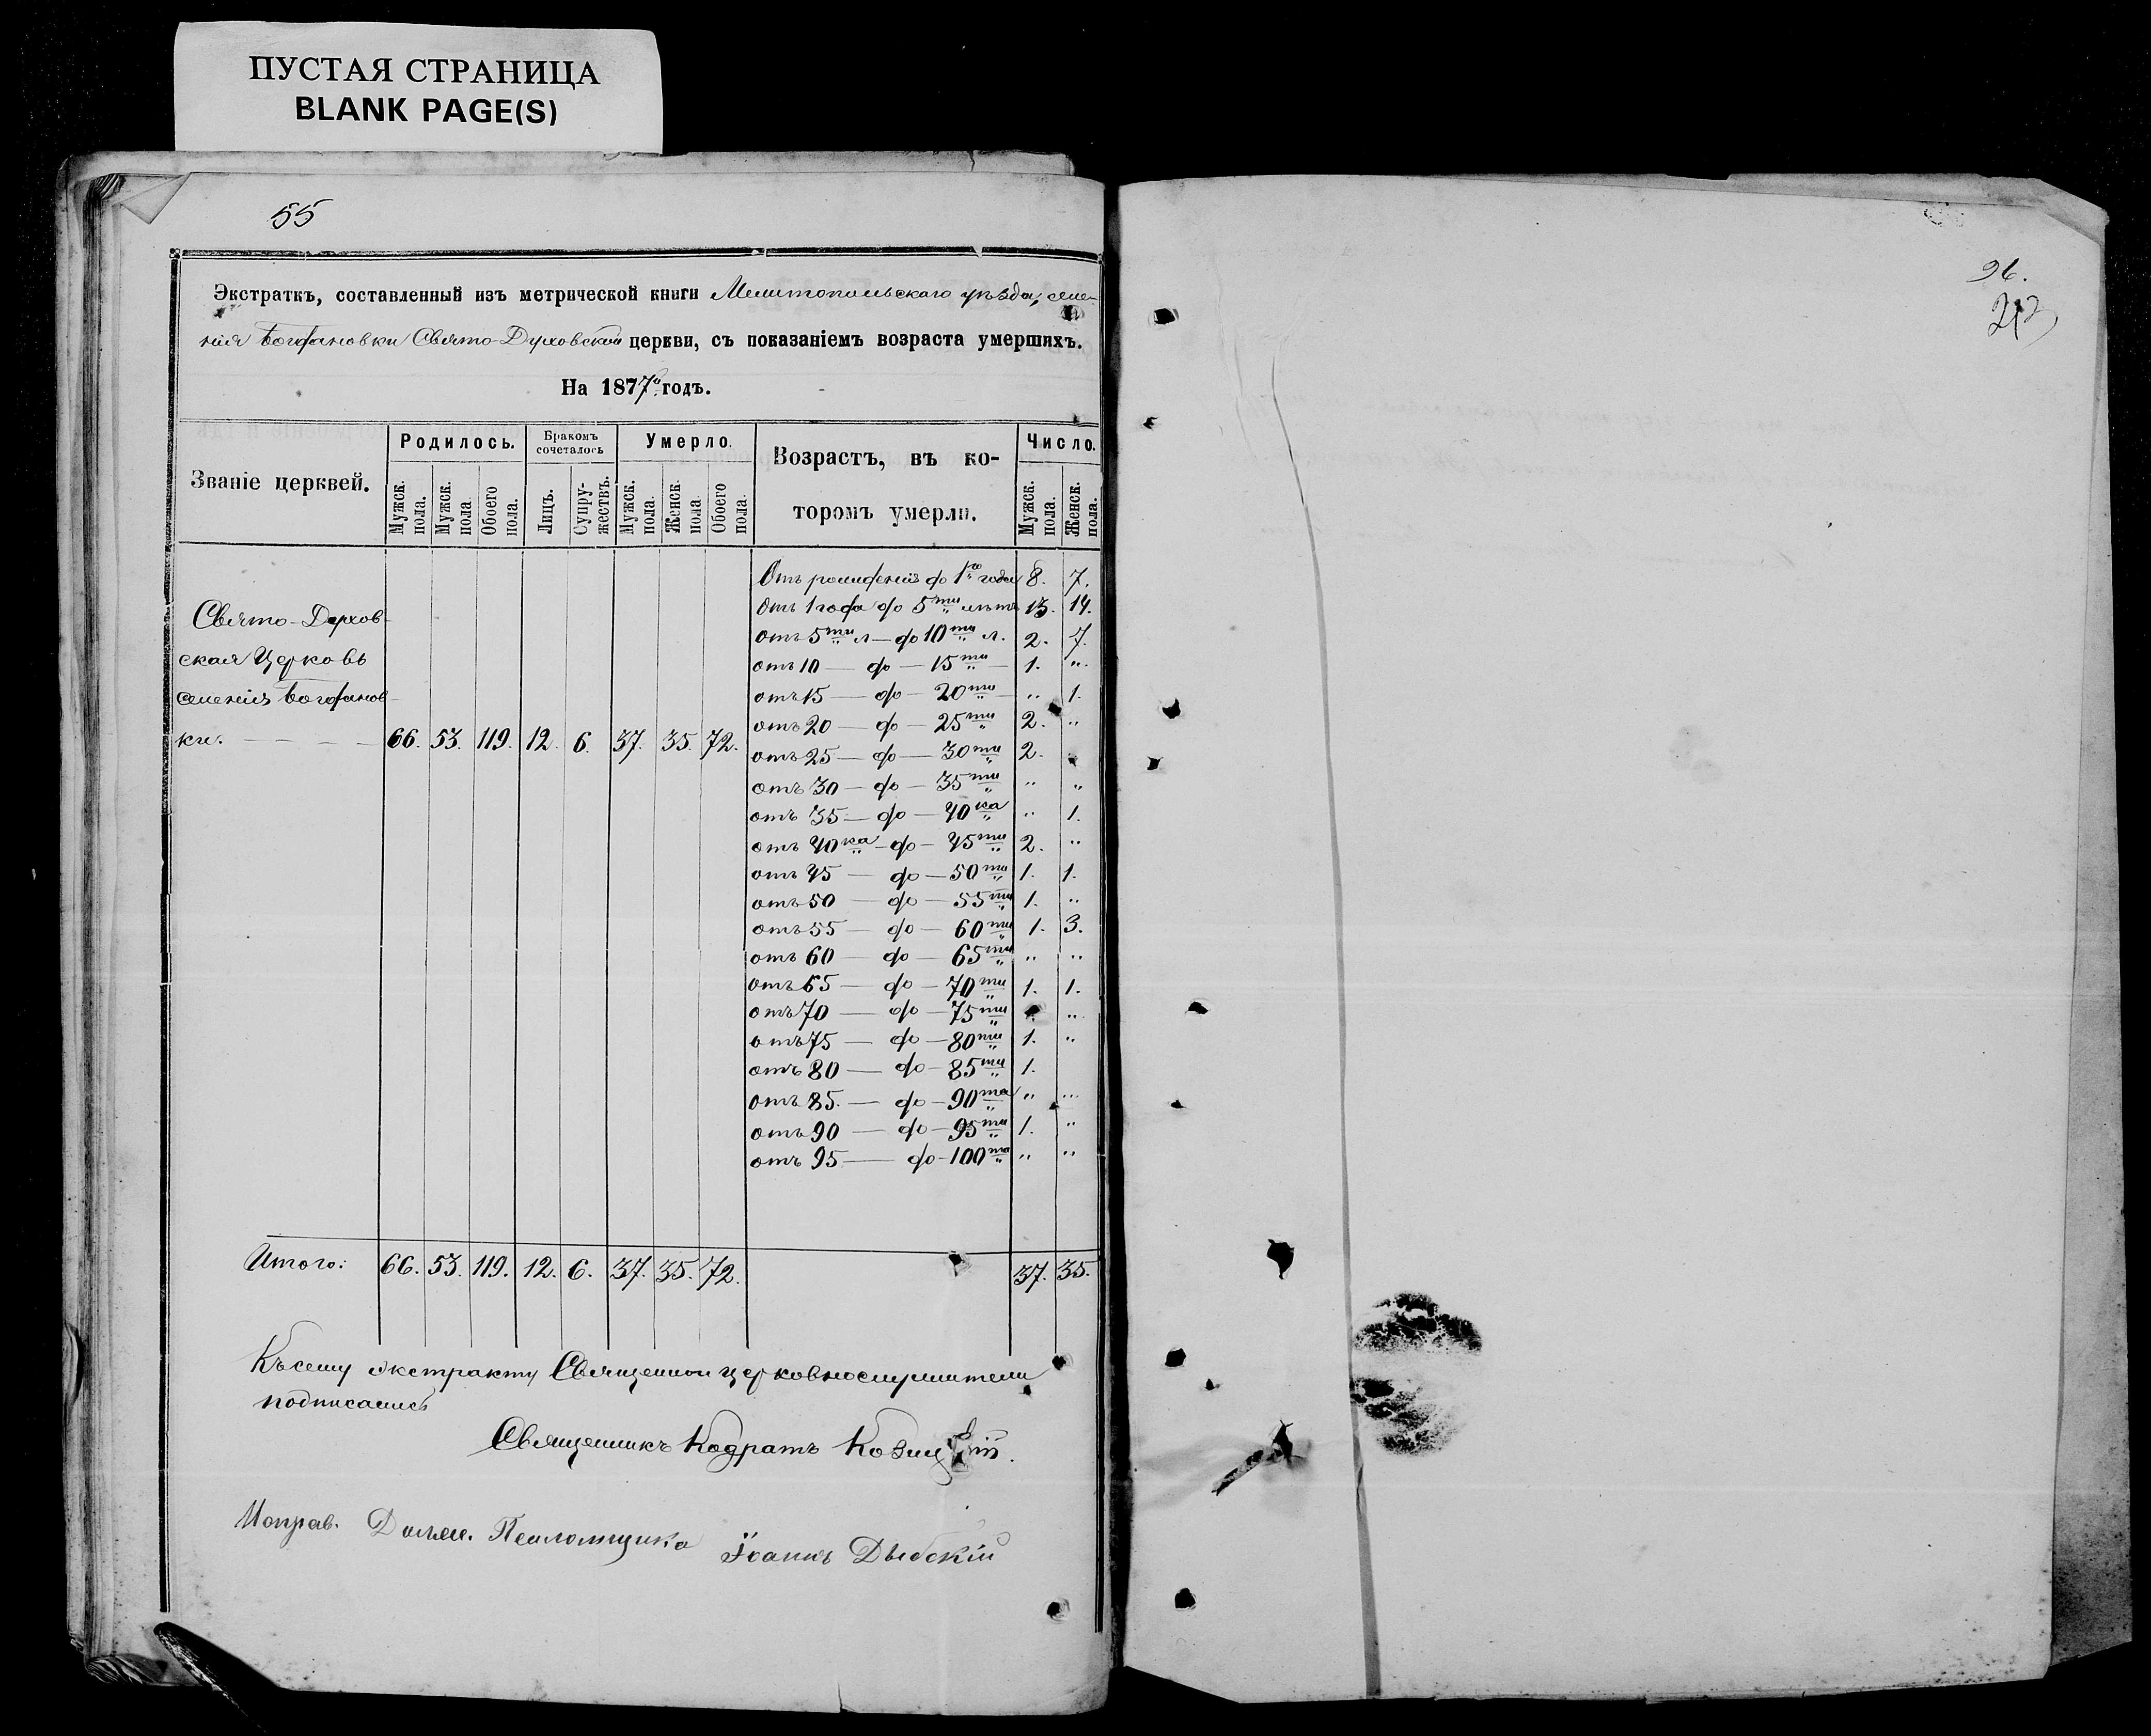 ПУСТАЯ СТРАНИЦА
BLANK PAGE(S)
55
Экстрактъ, составленный изъ метрической книги Мелитопольскаго уѣзда, селе-
нія Богдановки Свято-Духовской церкви, съ показаніемъ возраста умершихъ.
На 1877й годъ.
Званіе церквей. Родилось. Бракомъ сочеталось Умерло. Возрастъ, въ ко- Число.
торомъ умерли.
Мужск. пола. Мужск. пола Обоего пола. Лицъ. Супру-жествъ. Мужск. пола Женск. пола Обоего пола. Мужск. пола. Женск. пола.
Отъ рожденія до 1го года 8. 7.
Отъ 1 года до 5ти лѣтъ 13. 14.
отъ 5ти л — до 10ти л. 2. 7.
отъ 10 — до — 15ти — 1. "
отъ 15 — до — 20ти " 1.
отъ 20 — до — 25ти 2. "
отъ 25 — до — 30ти 2. "
отъ 30 — до — 35ти " "
отъ 35 — до — 40ка " 1.
отъ 40ка — до — 45ти 2. "
отъ 45 — до — 50ти 1. 1.
отъ 50 — до — 55ти 1. "
отъ 55 — до — 60ти 1. 3.
отъ 60 — до — 65ти " "
отъ 65 — до — 70ти 1. 1.
отъ 70 — до — 75ти "
отъ 75 — до — 80ти 1. "
отъ 80 — до — 85ти 1.
отъ 85. — до — 90та " "
отъ 90 — до — 95ти 1. "
отъ 95 — до — 100та " "
Свято-Духов-
ская Церковь
селенія Богданов-
ки. — — — 66. 53. 119. 12. 6. 37. 35. 72.
Итого: 66. 53. 119. 12. 6. 37. 35. 72. 37. 35.
Къ сему экстракту Священноцерковнослужители
подписались
Священникъ Кодратъ Козицкій.
Исправ. Должн. Псаломщика Іоаннъ Дыбскій
96.